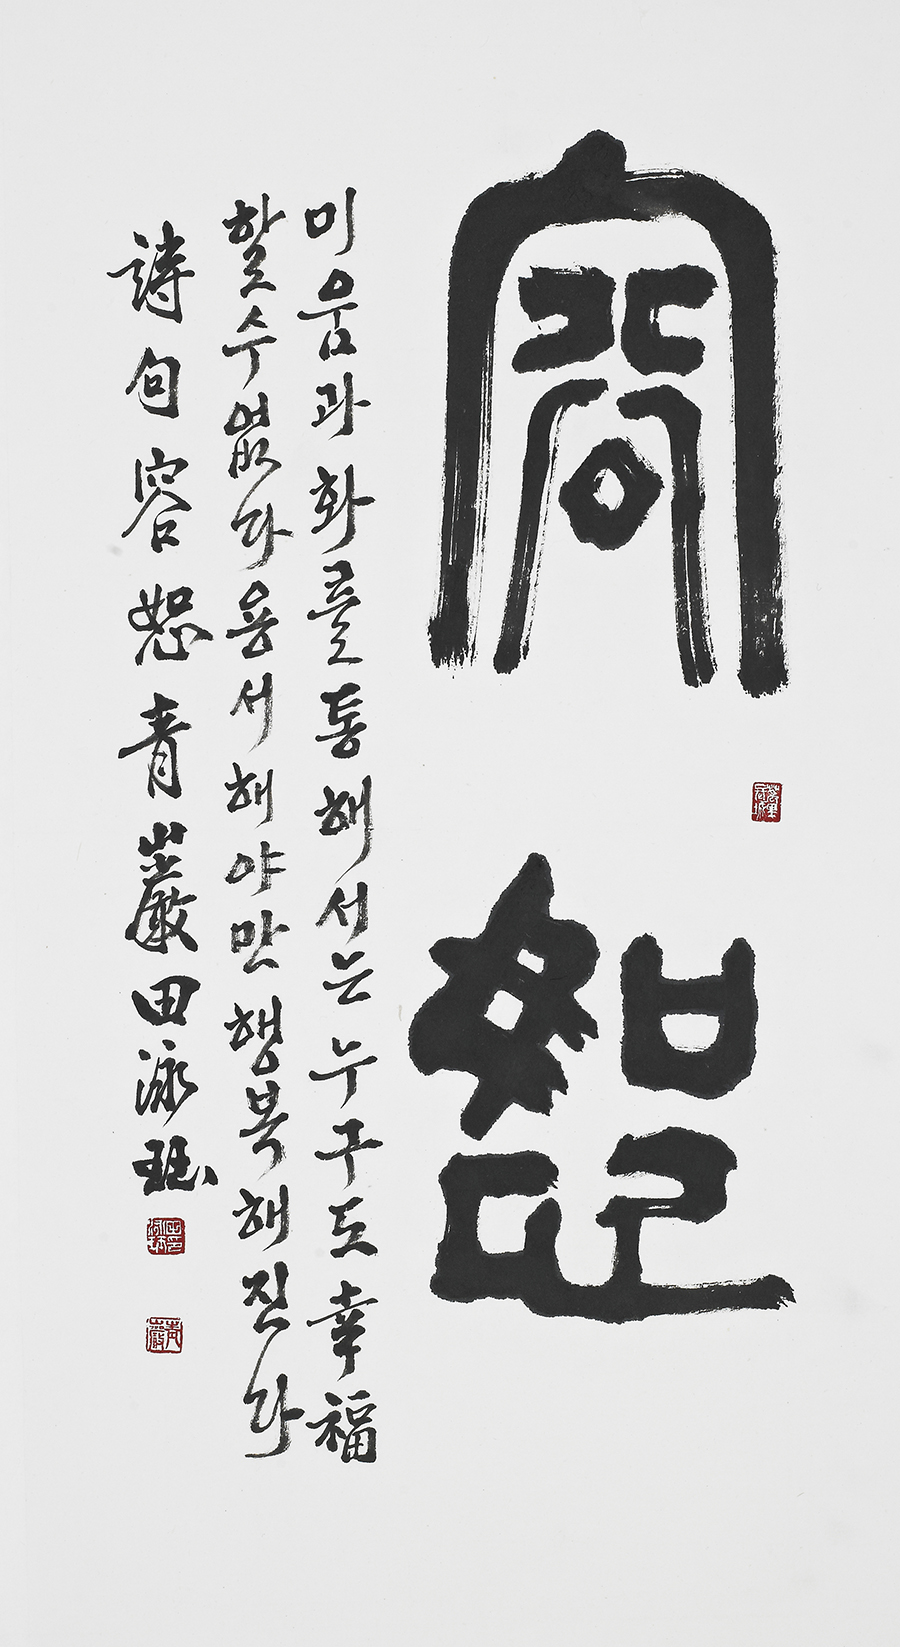 容恕
미움과화를통해서는누구도幸福
할수없다용서해야만행복해진다
詩句容恕青巖田泳珏